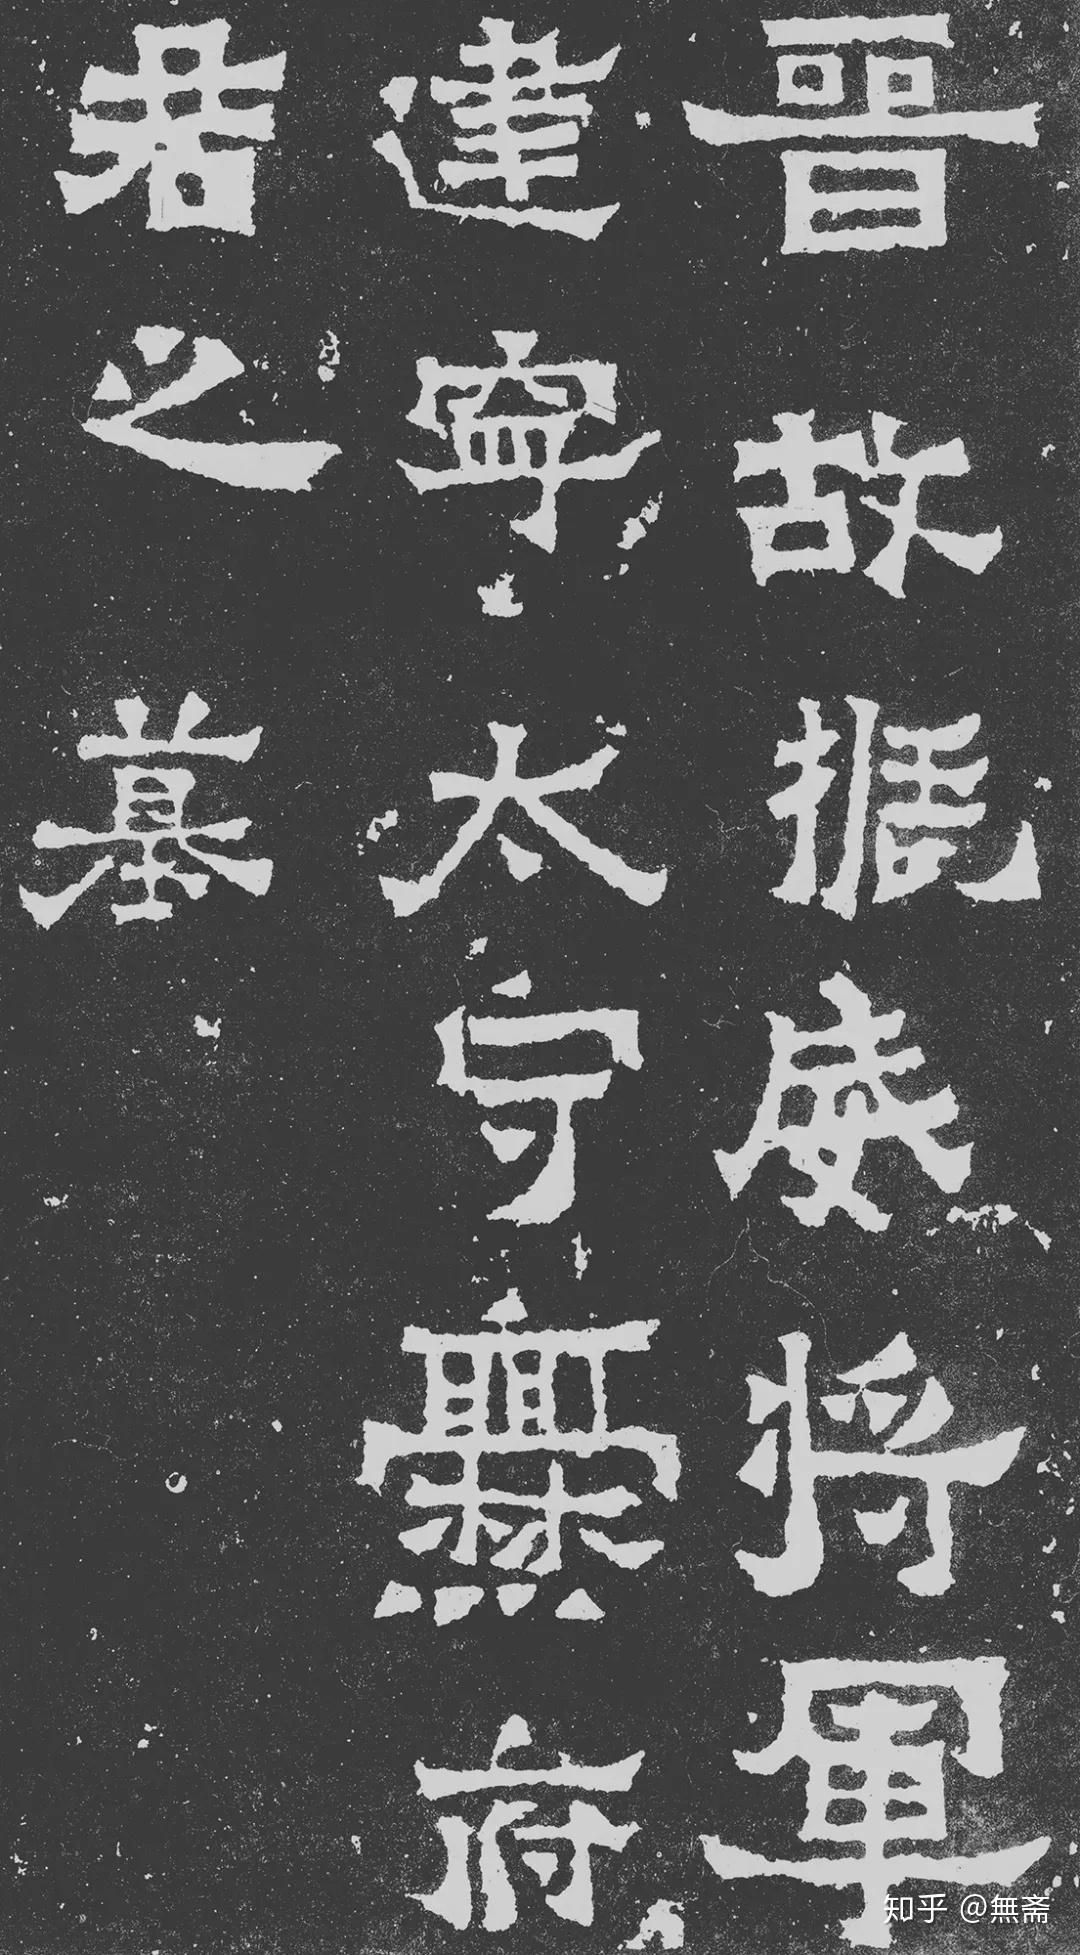 晋故振威將軍
建寧太守爨府
君之墓
知乎 @無斋